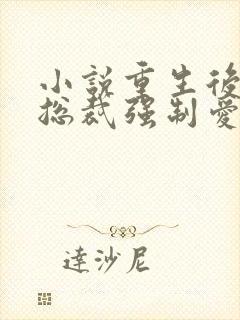 小說重生後
總裁強制愛
達沙尼